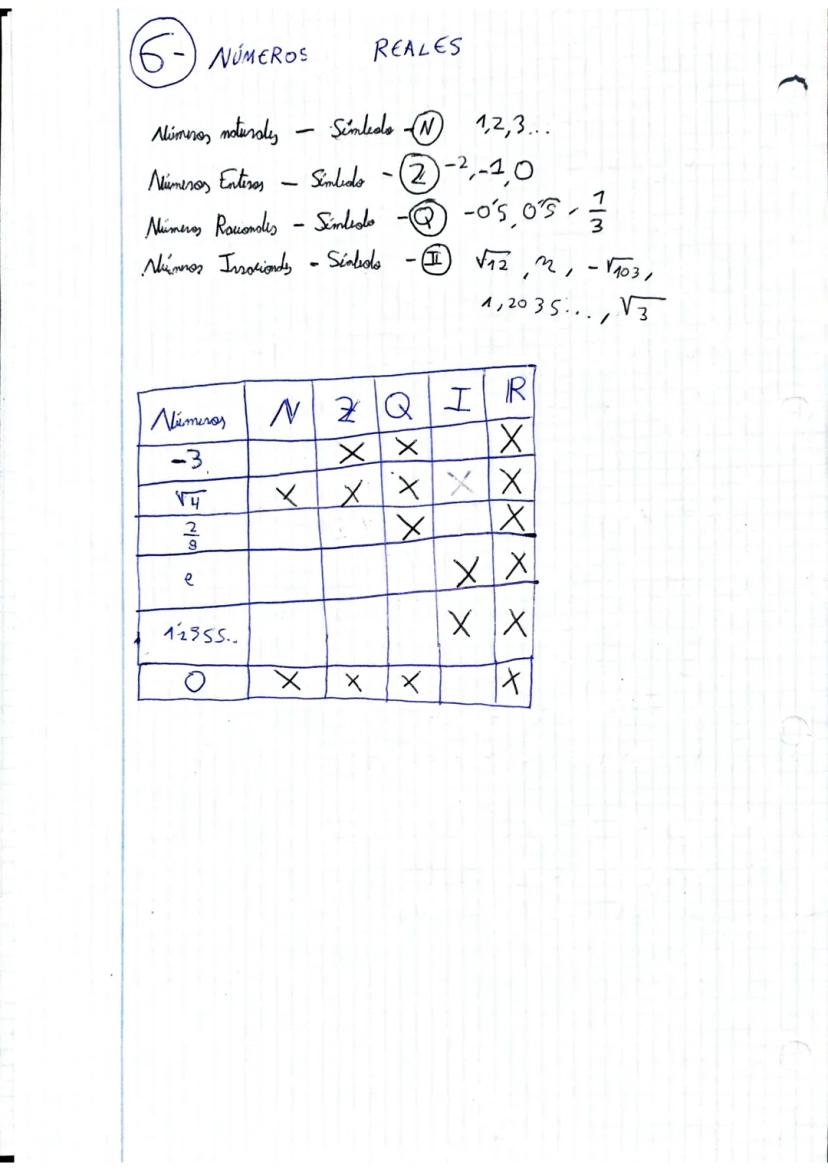 6- NÚMEROS REALES
Números naturales - Símbolo - N 1,2,3...
Números Enteros - Símbolo - Z -2,-1,0
Números Racionales - Símbolo - Q -0'5, 0'5, 1/3
Números Irracionales - Símbolo - II √12, -√103,
1,2035..., √3
Números N Z Q I R
-3 X X X
√4 X X X X X
2/9 X X
e X X
1'2355.. X X
0 X X X X